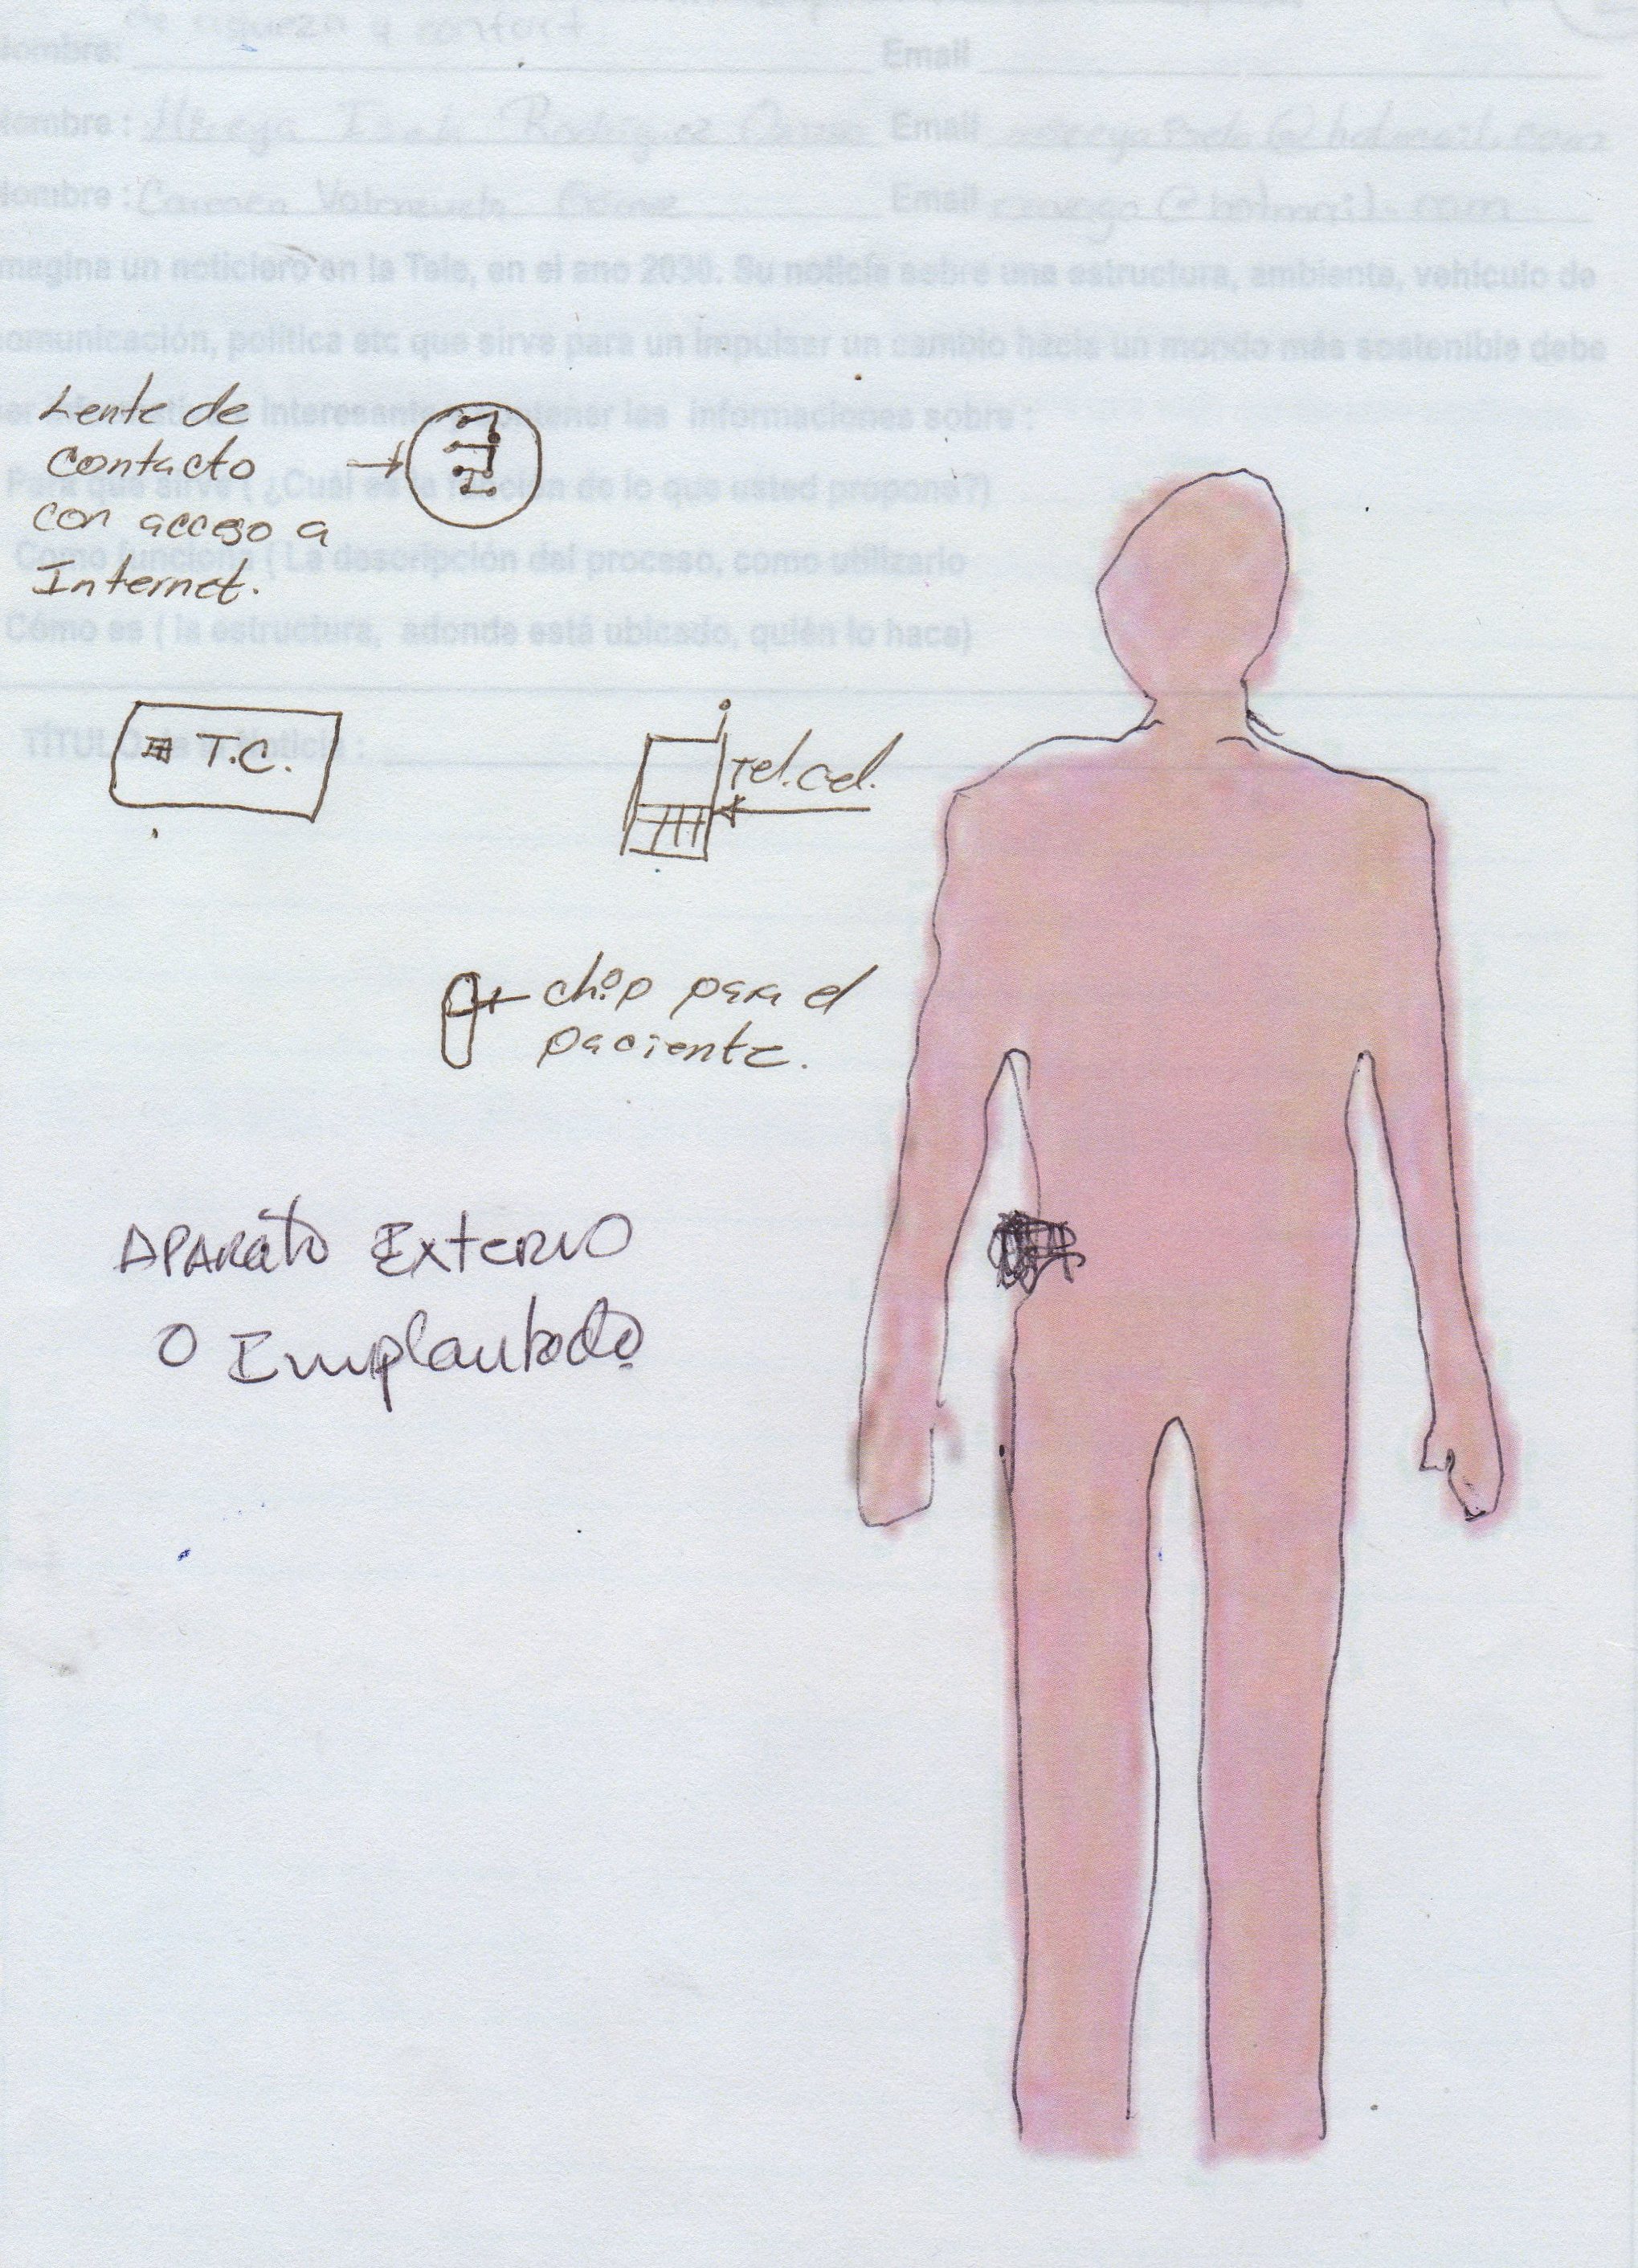 de y confort.
Nombre: Email
Nombre: Rodriguez Email @hotmail.com
Nombre: Carmen Valenzuela Email @hotmail.com
magina un noticiero en la Tele, en el ano 2030. Su noticia sobre una estructura, ambiente, vehiculo de
comunicación, política etc que sirve para un impulser un cambio hacia un mondo más sostenible debe
interesante las informaciones sobre :
Lente de
contacto
con acceso a
Internet.
Para que sirve ( ¿Cuál es la función de lo que usted propone?)
Como funciona ( La descripción del proceso, como utilizarlo
Cómo es ( la estructura, adonde está ubicado, quién lo hace)
TÍTULO de la Noticia :
T.C.
Tel. Cel.
chip para el
paciente.
APARATO EXTERNO
O Implantado